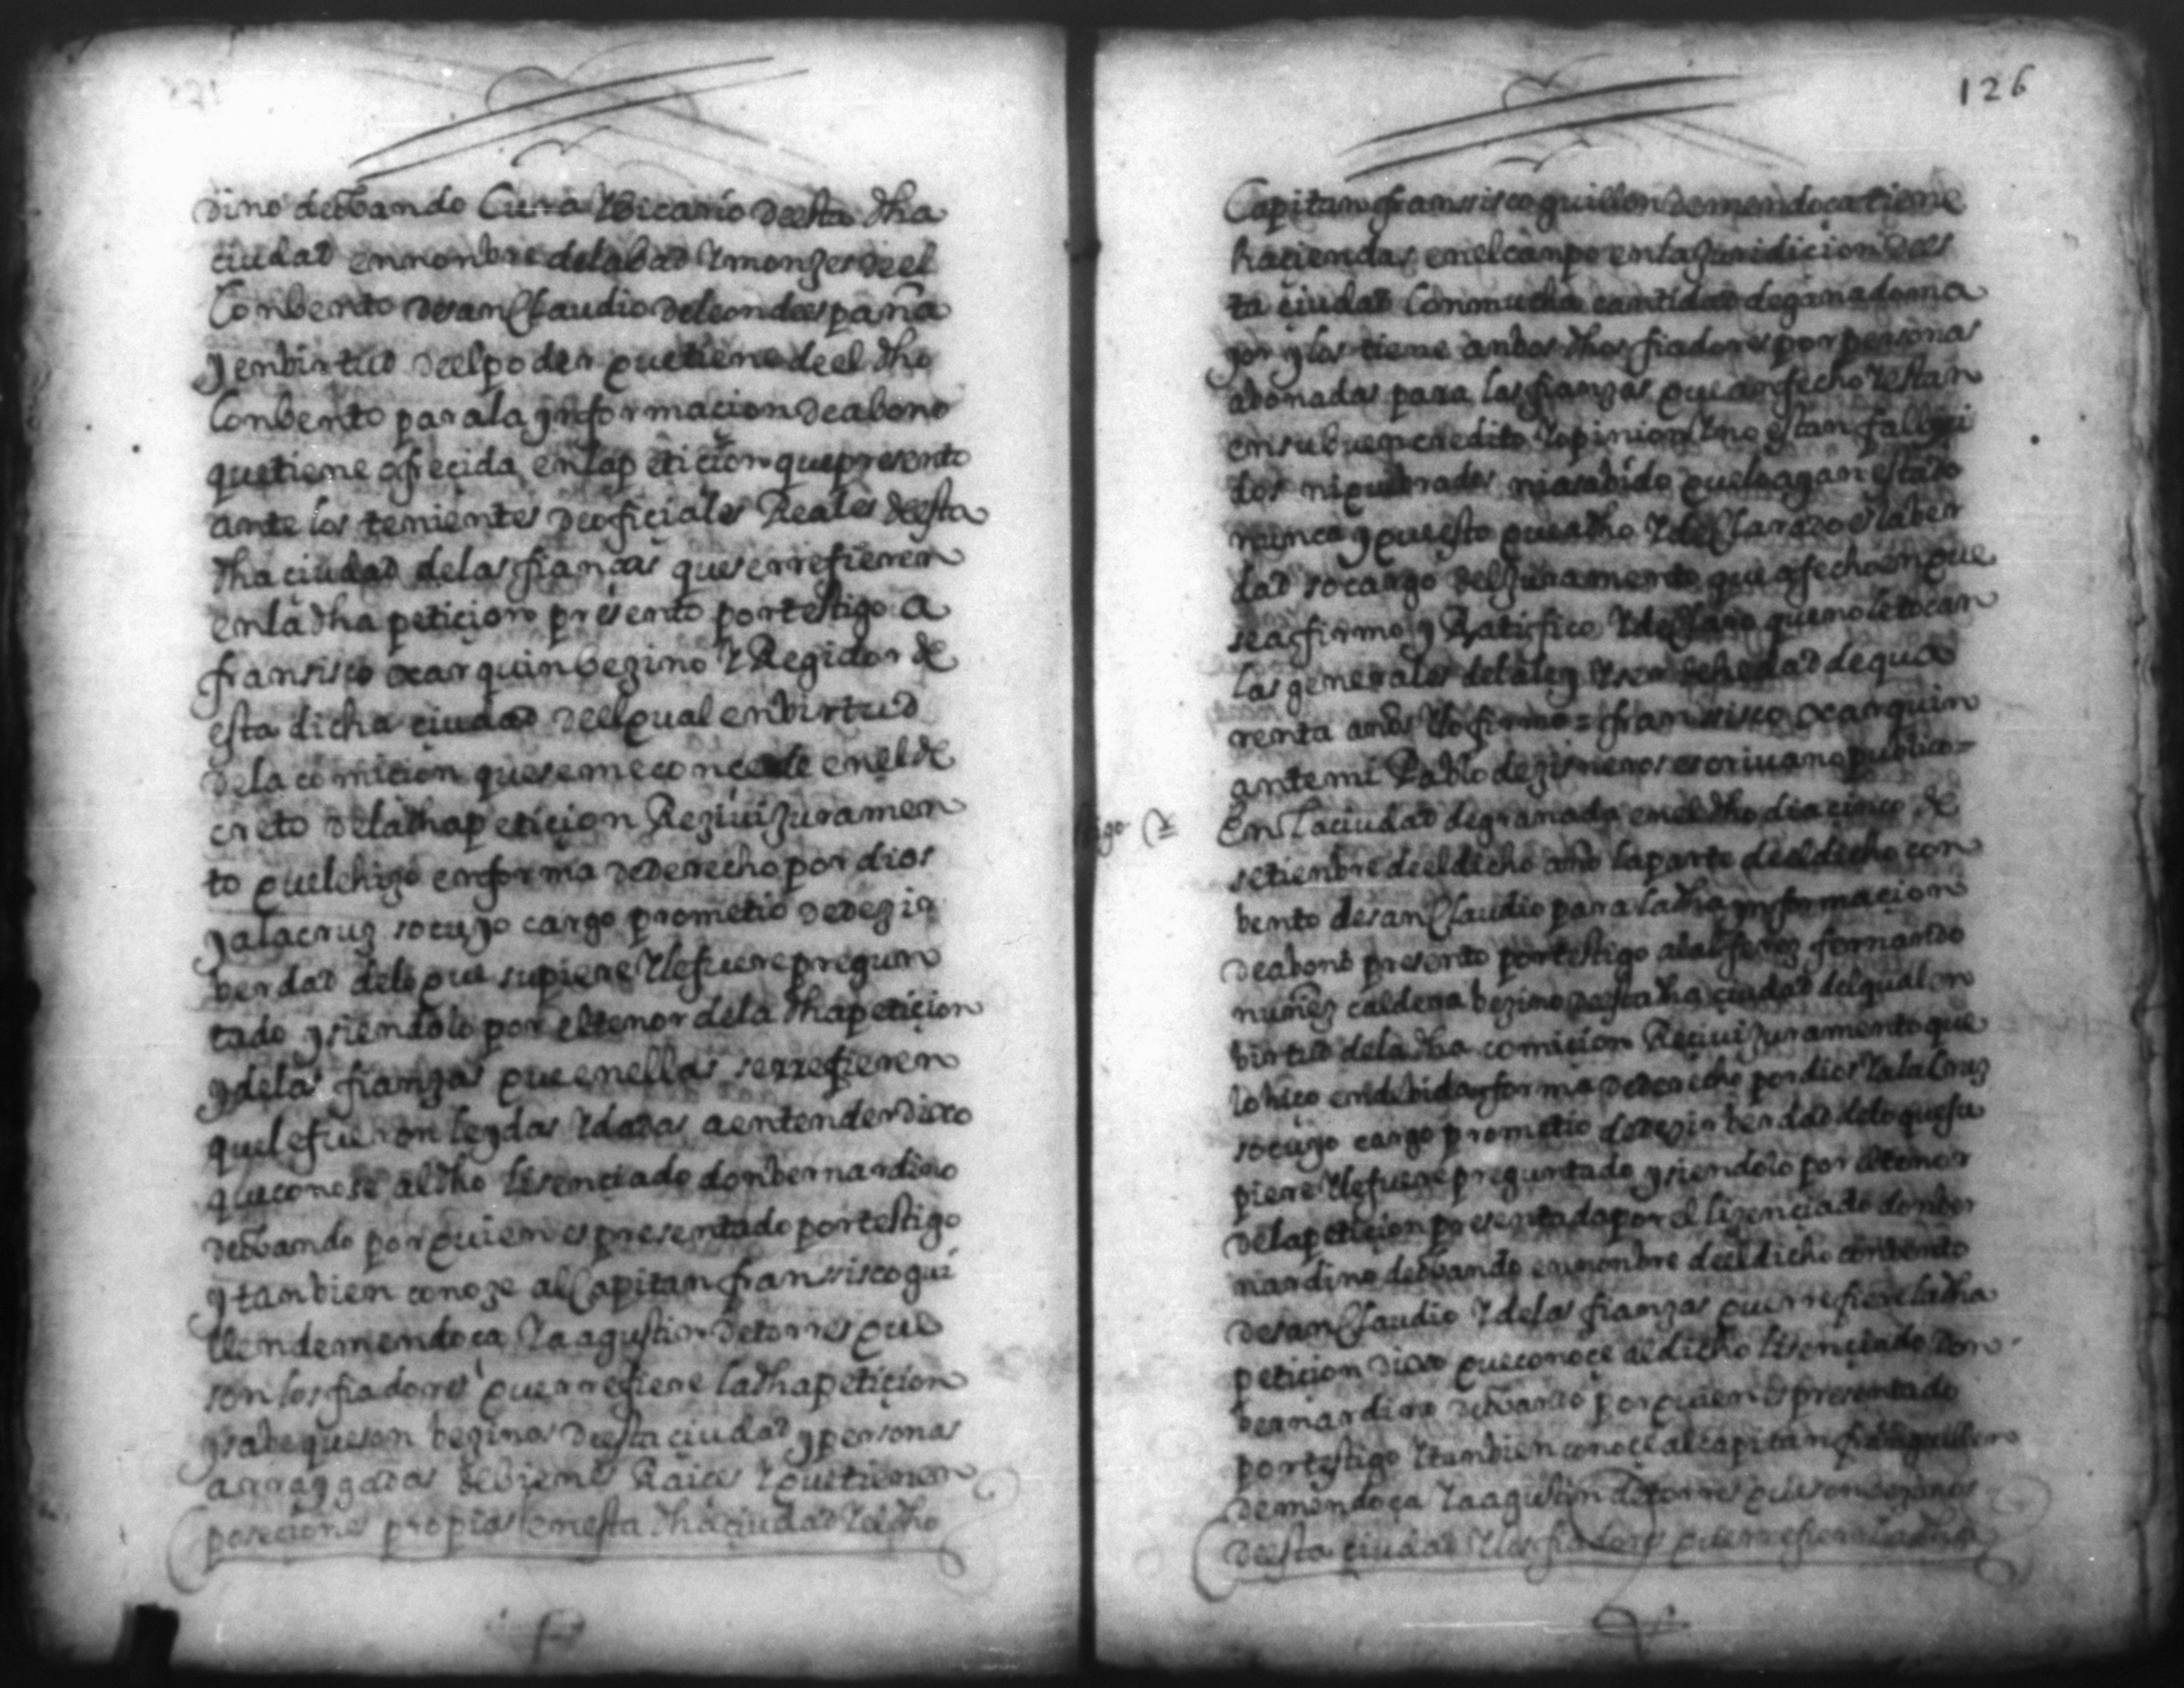 dino deobando Cura Vicario deesta dha
ciudad ennonbre delabad y monges deel
Conbento desan Claudio deleon deespaña
y enbirtud deelpoder quetiene deel dho
Conbento parala ynformacion deabono
quetiene ofrecida enlapeticion quepresento
ante los tenientes deoficiales Reales deesta
dha ciudad delas fianças queserrefieren
enla dha peticion presento portestigo a
fransisco xarquin bezino y Regidor de
esta dicha ciudad deelqual enbirtud
dela comicion quesemeconcede eneld
creto deladhapeticion Reziui juramen
to quelehizo enforma dederecho por dios
y alacruz socuyo cargo prometio dedezir
berdad delo que supiere y lefuere pregun
tado y siendolo por eltenor dela dhapeticion
y delas fianzas queenellas serrefieren
quelefueron leydas y dadas aentender dixo
queconose aldho lisenciado donbernardino
deobando porquien es presentado portestigo
y tanbien conoze alCapitan fransisco gui
llendemendoça y aagustin detorres que
son losfiadores querrefiere ladhapeticion
y sabe queson bezinos deesta ciudad y personas
arraygadas debienes Raices y quetienen
poseciones propias enesta dha ciudad y eldho
126
Capitan fransisco guillen demendoca tiene
haciendas enelcanpo enlajuridicion dees
ta ciudad Conmucha cantidad deganadoma
yor y los tiene anbos dhos fiadores por personas
abonadas para las fianzas que anfecho y estan
ensubuen credito y opinion y no estan falleçi
dos niquebrados niasabido queloayan estado
nunca y questo quea dho y declarado eslaber
dad socargo deljuramento que afecho enque
seafirmo y Ratifico y declaro quenoletocan
las generales delaley y ser dehedad dequa
renta años y lo firmo = fransisco xarquin
antemi Pablo dezisneros escriuano publico =
tigo
En laciudad degranada eneldho dia cinco de
setienbre deeldicho año laparte deeldicho con
bento desan Claudio para ladha ynformacion
deabono presento portestigo alalferez fernando
nuñez caldera bezino deesta dha ciudad delqual en
birtud dela dha comicion Reciui juramento que
lo hiço endebida forma dederecho por dios y ala Cruz
socuyo cargo prometio dedezir berdad delo quesu
piere y lefuere preguntado y siendolo por eltenor
delapeticion presentada por el lizenciado donber
nardino deobando ennonbre deeldicho conbento
desan Claudio y delas fianzas querrefiere ladha
peticion dixo queconoçe aldicho lisenciado don
bernardino deobando porquien es presentado
portestigo y tanbien conoçe alcapitan guillen
demendoça y aagustin detorres queson bezinos
deesta ciudad y los fiadores querrefiere ladha